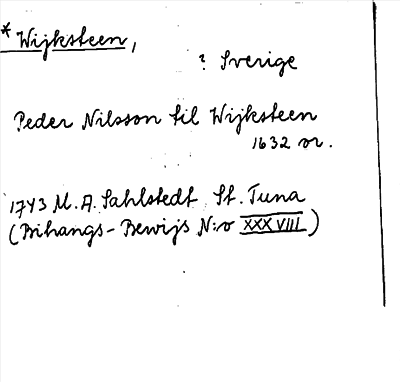 * Wijksteen,
? Sverige
Peder Nilsson til Wijksteen
1632 or.
1743 M. A. Sahlstedt, St. Tuna
(Bihangs-Bewijs N:o XXXVIII)